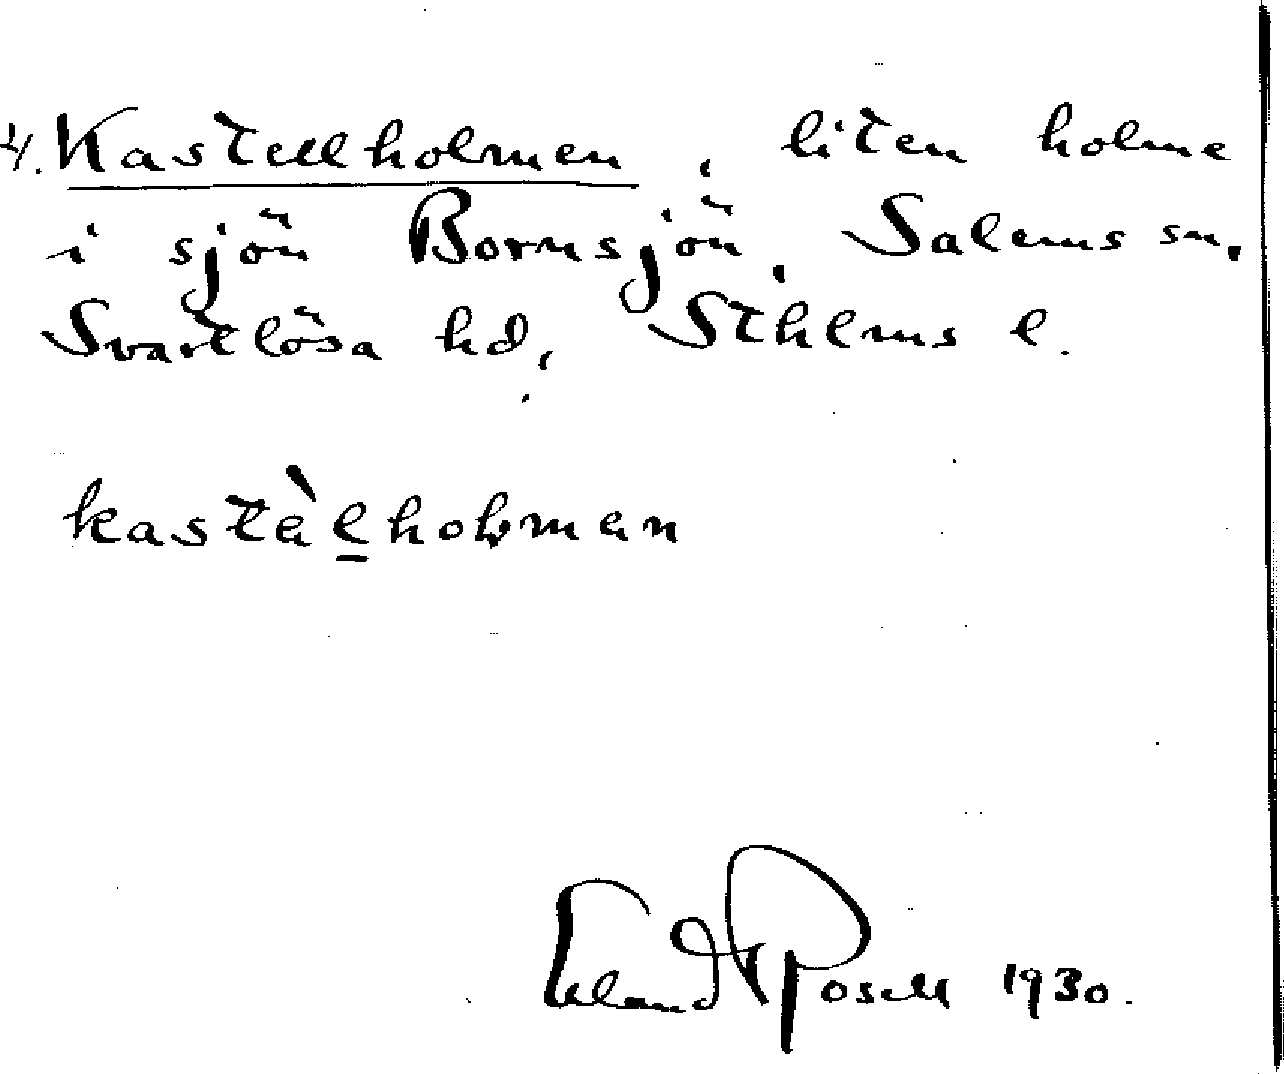 4. Kastellholmen, liten holme
i sjön Bornsjön, Salems sn,
Svartlösa hd, Sthlms l.
kastèlholman
Erland Rosell 1930.